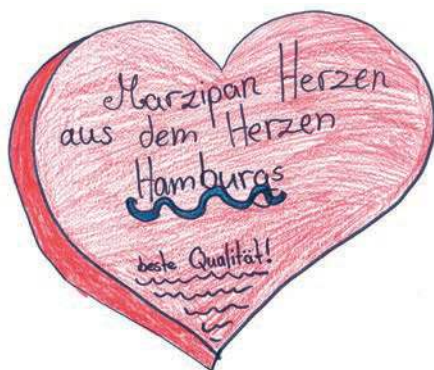 Marzipan Herzen
aus dem Herzen
Hamburgs
beste Qualität!